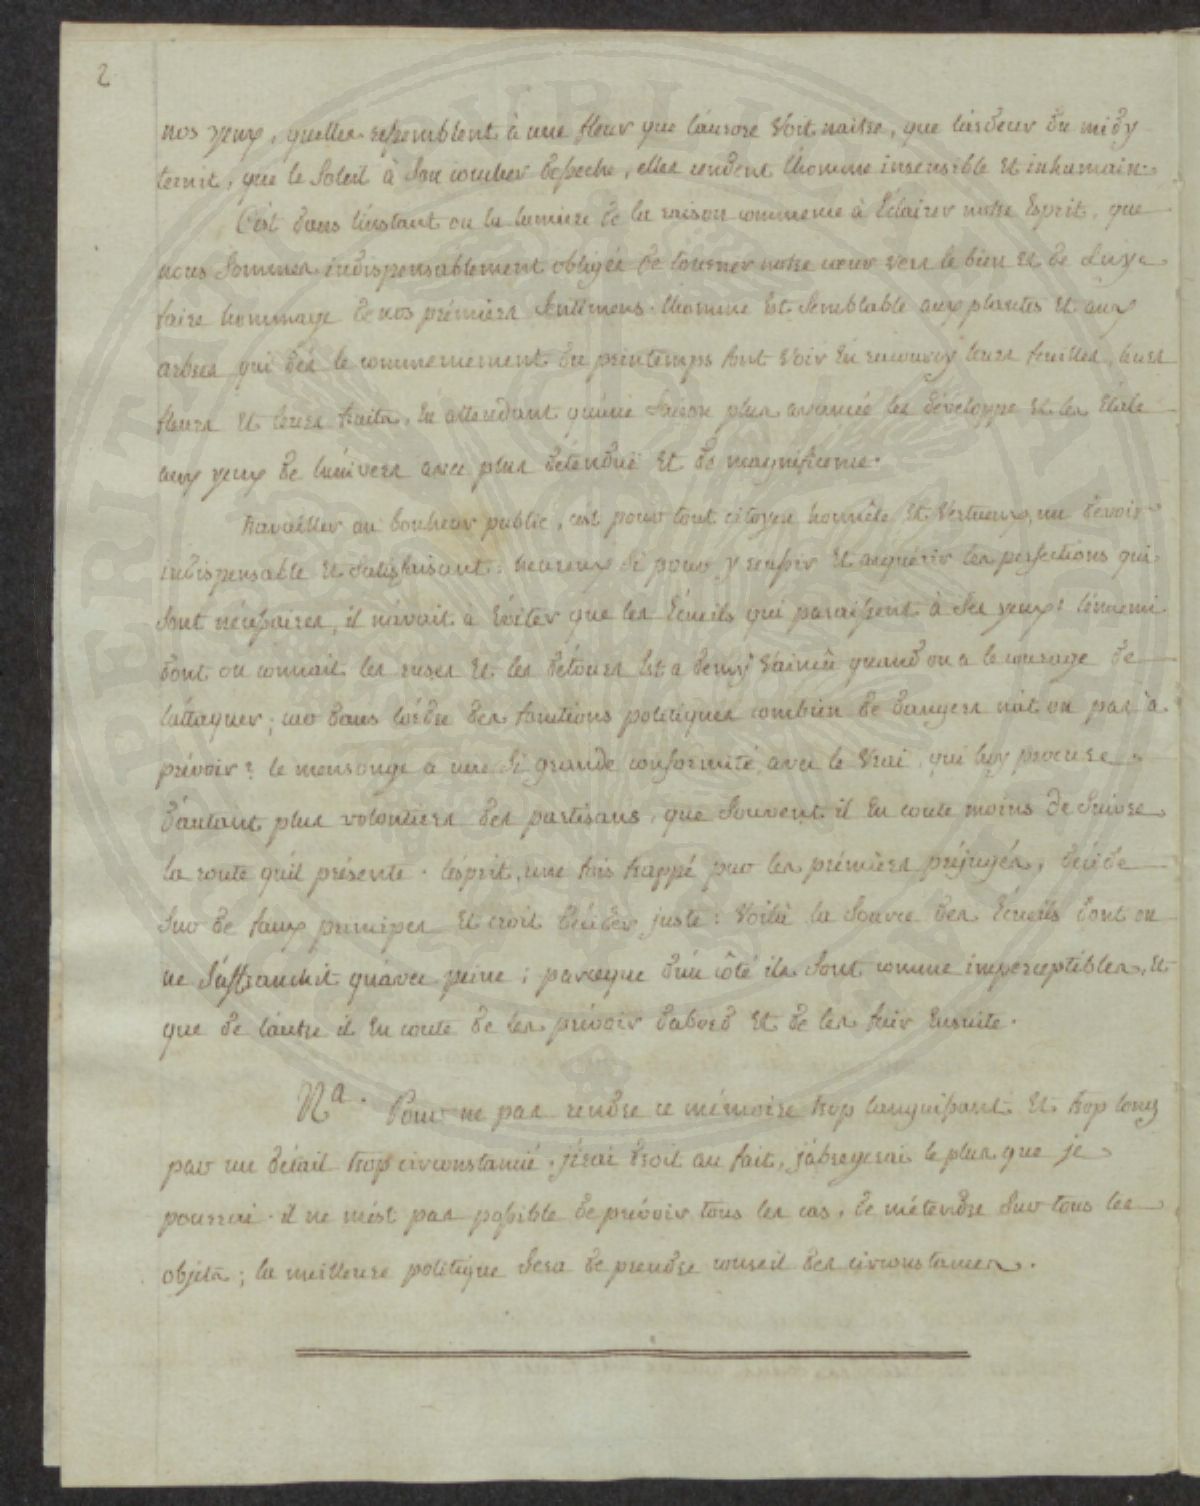 2
nos yeux, quelles ressemblent à une fleur que l'aurore voit naitre, que l'ardeur du midy
ternit, que le soleil à son coucher desseche, elles rendent l'homme insensible et inhumain.
C'est dans l'instant ou la lumiere de la raison commence à éclairer notre esprit, que
nous sommes indispensablement obligés de tourner notre cœur vers le bien et de Luy
faire hommage de nos prémiers sentimens. l'homme est semblable aux plantes et aux
arbres qui dès le commencement du printemps font voir en racourcy leurs feuilles, leurs
fleurs et leurs fruits, en attendant qu'une saison plus avancée les développe et les étale
aux yeux de l'univers avec plus d'étenduë et de magnificence.
travailler au bonheur public, est pour tout citoyen honnête et vertueux, un devoir
indispensable et satisfaisant: heureux si pour y reussir et acquérir les perfections qui
sont nécessaires, il n'avoit à éviter que les écueils qui paraissent à ses yeux! l'ennemi
dont on connait les ruses et les détours est a demy vaincû quand on a le courage de
l'attaquer; car dans l'ordre des fonctions politiques combien de dangers n'at on pas à
prévoir? le mensonge a une si grande conformité avec le vrai, qui luy procure
d'autant plus volontiers des partisans, que souvent il en coute moins de suivre
la route qu'il présente. l'esprit, une fois frappé par les prémiers préjugés, décide
sur de faux principes et croit décider juste: voilà la source des écueils dont on
ne s'affranchit qu'avec peine; parceque d'un côté ils sont comme imperceptibles, et
que de l'autre il en coute de les prévoir d'abord et de les fuir ensuite.
Na. Pour ne pas rendre ce mémoire trop languissant et trop long
par un détail trop circonstancié. j'irai droit au fait, j'abregerai le plus que je
pourrai. il ne m'est pas possible de prévoir tous les cas, de m'étendre sur tous les
objets; la meilleure politique sera de prendre conseil des circonstances.